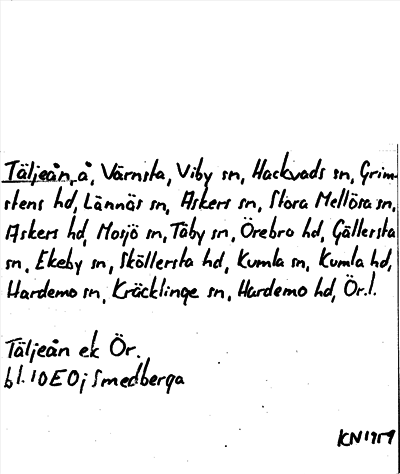 Täljeån, å, Värnsta, Viby sn, Hackvads sn, Grim-
stens hd, Lännäs sn, Askers sn, Stora Mellösa sn,
Askers hd, Mosjö sn, Täby sn, Örebro hd, Gällersta
sn, Ekeby sn, Sköllersta hd, Kumla sn, Kumla hd,
Hardemo sn, Kräcklinge sn, Hardemo hd, Ör.l.
Täljeån ek Ör.
bl. 10E0j Smedberga